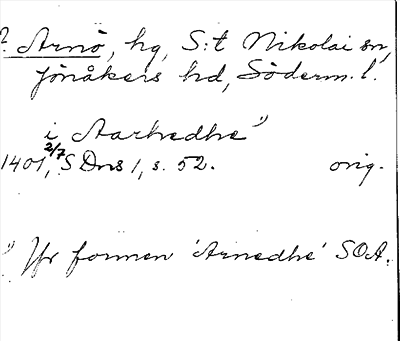 ? Arnö, hg, S:t Nikolai sn,
Jönåkers hd, Söderm. l.
i Aarhedhe"
1401, 2/7, S Dns 1, s. 52. orig.
" Jfr formen 'Arnedhe' SOA.